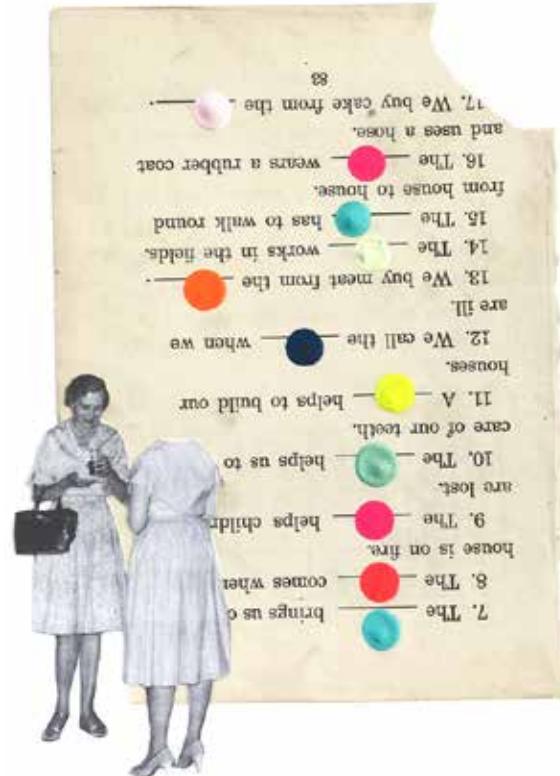 7. The ____ brings us
8. The ____ comes
house is on fire.
9. The ____ helps
are lost.
10. The ____ helps us to
care of our teeth.
11. A ____ helps to build our
houses.
12. We call the ____ when we
are ill.
13. We buy meat from the ____.
14. The ____ works in the fields.
15. The ____ has to walk round
from house to house.
16. The ____ wears a rubber coat
and uses a hose.
17. We buy cake from the ____.
83